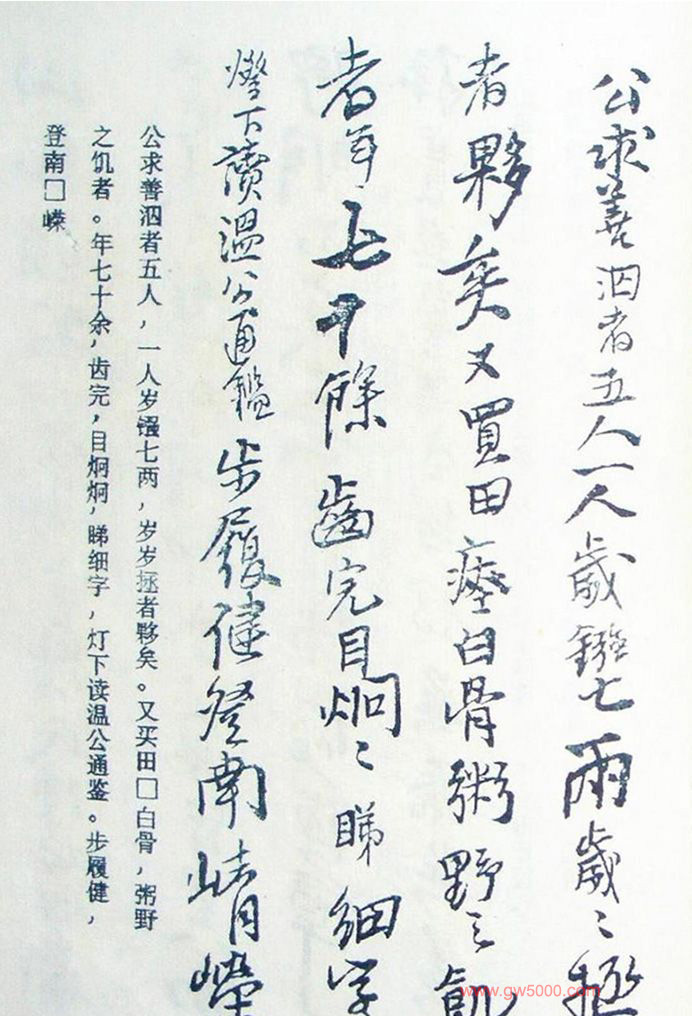 公求善泅者五人一人歲鏹七兩歲〻拯
者夥矣又買田瘞白骨粥野之飢
者年七十餘齒完目炯〻睇細字
燈下讀溫公通鑑步履健登南崝嶸
公求善泅者五人，一人岁镪七两，岁岁拯者夥矣。又买田□白骨，粥野
之饥者。年七十余，齿完，目炯炯，睇细字，灯下读温公通鉴。步履健，
登南□嵘
www.gw5000.com